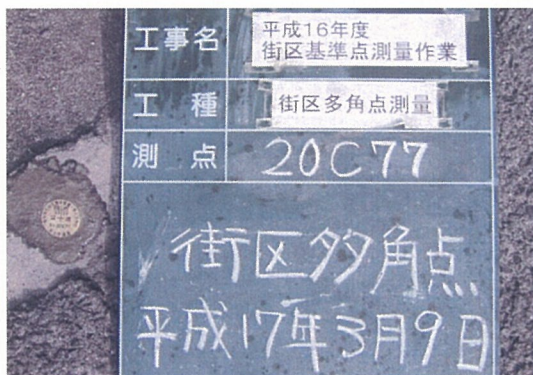 工事名
平成16年度
街区基準点測量作業
工種
街区多角点測量
測点
20C77
街区多角点
平成17年3月9日